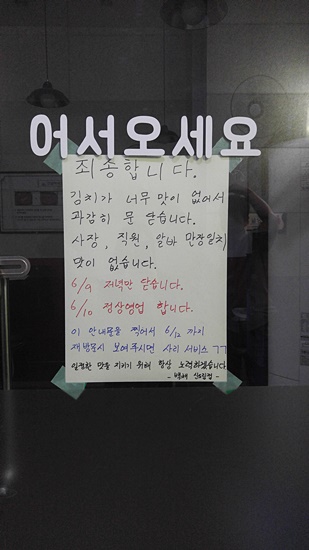 어서오세요
죄송합니다.
김치가 너무 맛이 없어서
과감히 문 닫습니다.
사장, 직원, 알바 만장일치
맛이 없습니다.
6/9 저녁만 닫습니다.
6/10 정상영업 합니다.
이 안내문을 찍어서 6/12 까지
재방문시 보여주시면 사리 서비스 ㄱㄱ
일정한 맛을 지키기 위해 항상 노력하겠습니다